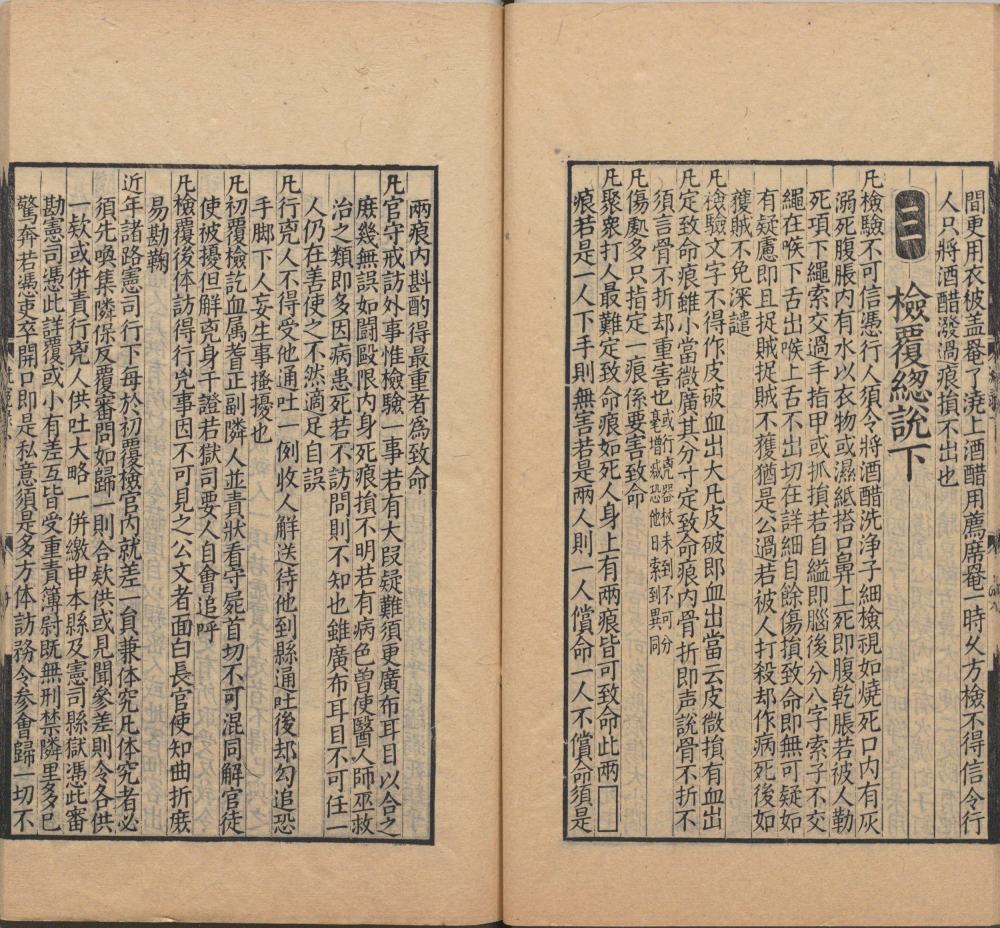 間更用衣被盖罨了澆上酒醋用薦席罨一時久方檢不得信令行
人只將酒醋潑過痕損不出也
三 檢覆總說下
凡檢驗不可信憑行人須令將酒醋洗浄子細檢視如燒死口内有灰
溺死腹脹内有水以衣物或濕紙搭口鼻上死即腹乾脹若被人勒
死項下繩索交過手指甲或抓損若自縊即腦後分八字索子不交
繩在喉下舌出喉上舌不出切在詳細自餘傷損致命即無可疑如
有疑慮即且捉賊捉賊不獲猶是公過若被人打殺却作病死後如
獲賊不免深譴
凡檢驗文字不得作皮破血出大凡皮破即血出當云皮微損有血出
凡定致命痕雖小當微廣其分寸定致命痕内骨折即声說骨不折不
須言骨不折却重害也或行兇器杖未到不可分毫增減恐他日索到異同
凡傷處多只指定一痕係要害致命
凡聚衆打人最難定致命痕如死人身上有兩痕皆可致命此兩
痕若是一人下手則無害若是兩人則一人償命一人不償命須是
兩痕内斟酌得最重者為致命
凡官守戒訪外事惟檢驗一事若有大叚疑難須更廣布耳目以合之
庻幾無誤如鬪毆限内身死痕損不明若有病色曽使醫人師巫救
治之類即多因病患死若不訪問則不知也雖廣布耳目不可任一
人仍在善使之不然適足自誤
凡行兇人不得受他通吐一例收人解送待他到縣通吐後却勾追恐
手脚下人妄生事搔擾也
凡初覆檢訖血属耆正副隣人並責狀看守屍首切不可混同解官徒
使被擾但解兇身干證若獄司要人自會追呼
凡檢覆後体訪得行兇事因不可見之公文者面白長官使知曲折庻
易勘鞠
近年諸路憲司行下每於初覆檢官内就差一員兼体究凡体究者必
須先喚集隣保反覆審問如歸一則合欵供或見聞參差則令各供
一欵或併責行兇人供吐大略一併繳申本縣及憲司縣獄憑此審
勘憲司憑此詳覆或小有差互皆受重責簿尉既無刑禁隣里多已
驚奔若憑吏卒開口即是私意須是多方体訪務令參會歸一切不